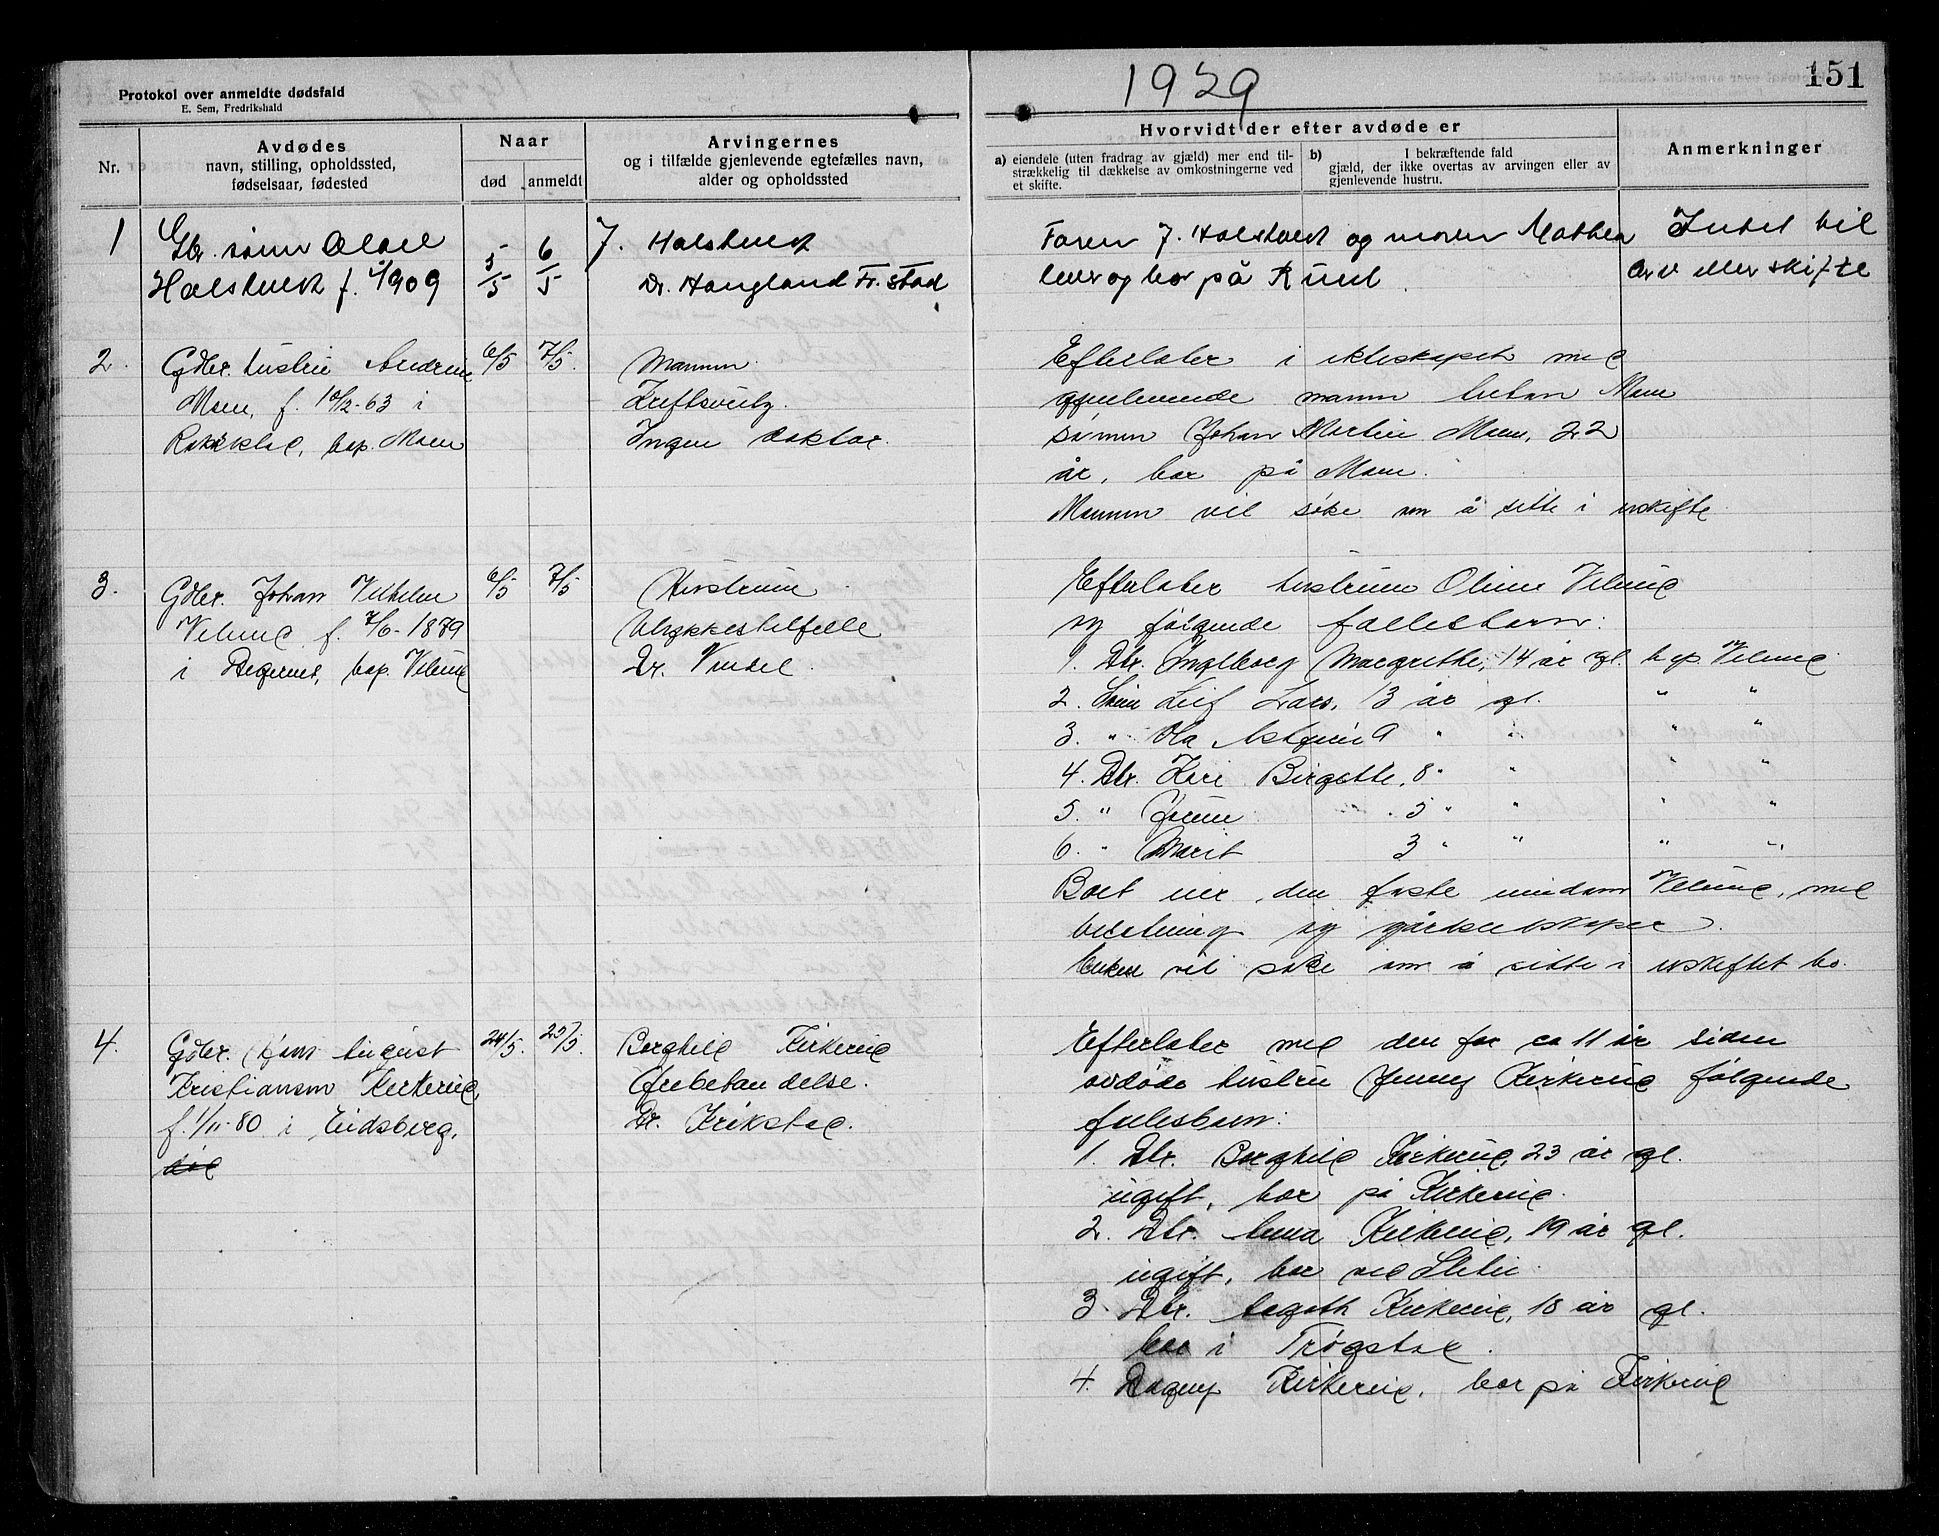 Protokol over anmeldte dødsfald
E. Sem, Fredrikshald
1929
151
Nr.
Avdødes
navn, stilling, opholdssted,
fødselsaar, fødested
Naar
død
anmeldt
Arvingernes
og i tilfælde gjenlevende egtefælles navn,
alder og opholdssted
Hvorvidt der efter avdøde er
a) eiendele (uten fradrag av gjæld) mer end til-
strækkelig til dækkelse av omkostningerne ved
et skifte.
b) I bekræftende fald
gjæld, der ikke overtas av arvingen eller av
gjenlevende hustru.
Anmerkninger
1
Gbr. sønn Olav
Halstvedt f. 1/1909
5/5
6/5
J. Halstvedt
Dr. Haugland Fr.stad
Faren J. Halstvedt og moren Mathea
lever og bor på Rud.
Intet til
arv eller skifte
2.
Gdbr. hustru Andrine
Moen, f. 10/2-63 i
Rakkestad, bop. Moen
6/5
7/5.
Mannen
Kreftsvulst.
Ingen doktor.
Efterlater i ekteskapet med
gjenlevende mann Moen
sønnen Johan Martin Moen, 22
år, bor på Moen.
Mannen vil søke om å sitte i uskifte
3.
Gdbr. Johan Vilhelm
f. 7/6-1879
i Degernes, bop.
6/5
7/5
Hustruen
Ulykkestilfelle
Dr.
Efterlater hustruen Oline
og følgende fellesbarn:
1. Dtr. Ingeborg Margrethe, 14 år gl. bop.
2. Sønn Leif Lars, 13 år gl. " "
3. " Ola 9 " " " "
4. Dtr. Kari Birgitte, 8 " " " "
5. " Jorunn 5 " " " "
6. " Marit 3 " " " "
Boet eier den faste eiendom med
besetning og gårdsredskaper.
Enken vil søke om å sitte i uskiftet bo.
4.
Gdbr. Hans August
Kristiansen Kirkerud,
f. 1/11-80 i Eidsberg,
24/5.
25/5.
Borghild Kirkerud
Dr. Krikstad.
Efterlater med den for ca 11 år siden
avdøde hustru Jenny Kirkerud følgende
fellesbarn:
1. Dtr. Borghild Kirkerud, 23 år gl.
ugift, bor på Kirkerud.
2. Dtr. Anna Kirkerud, 19 år gl.
ugift, bor ved
3. Dtr. Aagoth Kirkerud, 18 år gl.
bor i Trøgstad.
4. Dagny Kirkerud, bor på Kirkerud